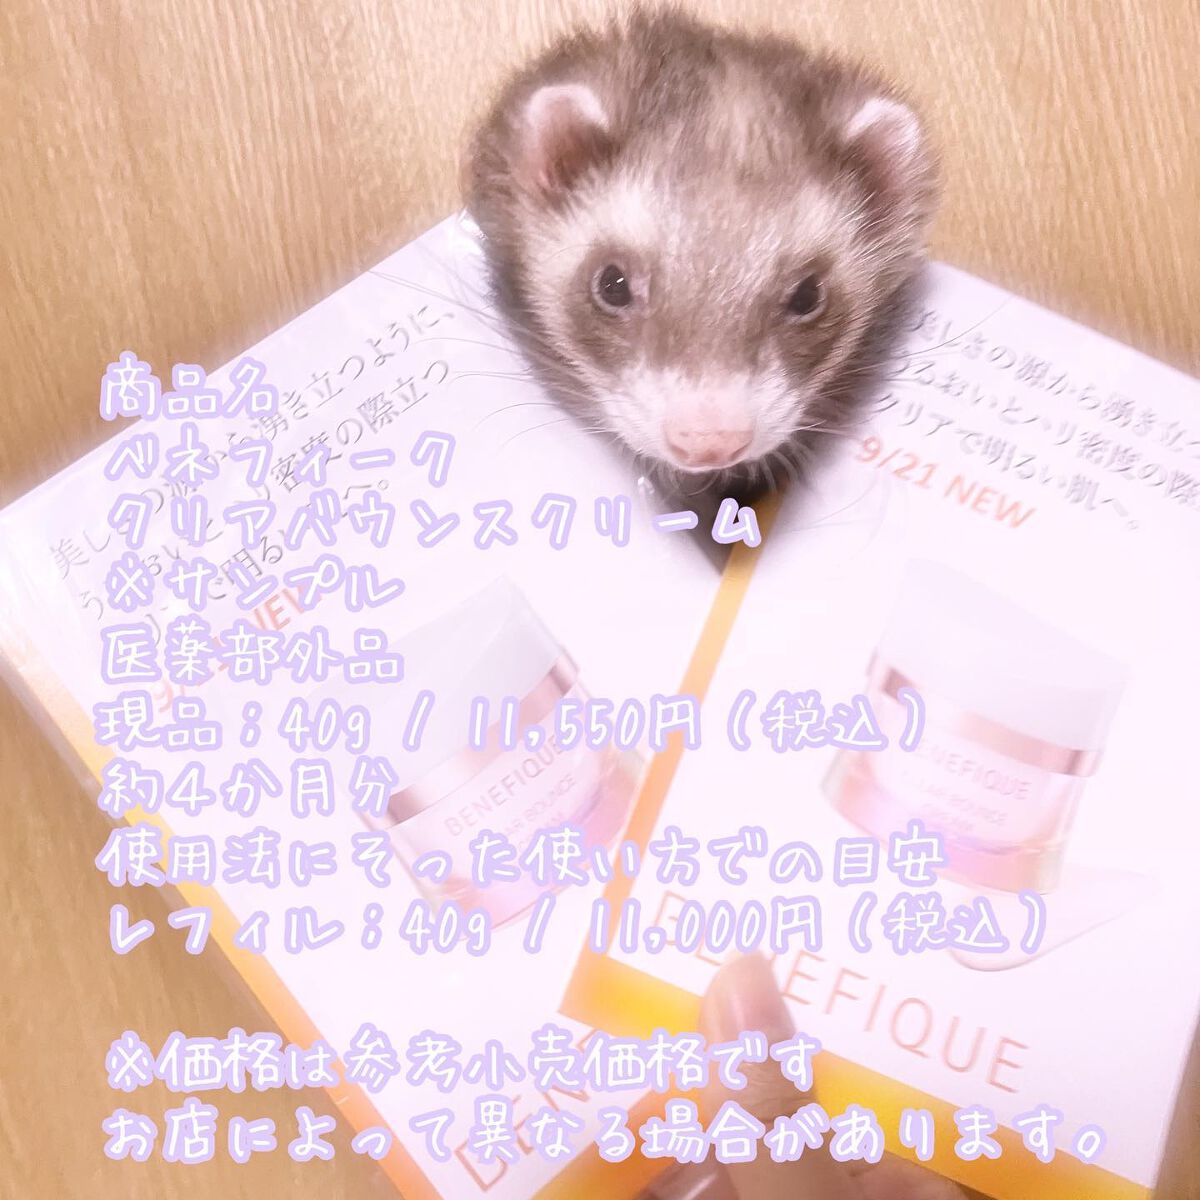 商品名
ベネフィーク
クリアバウンスクリーム
※サンプル
医薬部外品
現品；40g / 11,550円（税込）
約4か月分
使用法にそった使い方での目安
レフィル；40g / 11,000円（税込）
※価格は参考小売価格です
お店によって異なる場合があります。
湧き立つように、
密度の際立つ
BENEFIQUE
美しさの源から湧き立つ
うるおいとハリ密度の際
クリアで明るい肌へ。
9/21 NEW
BENEFIQUE
CLEAR BOUNCE
CREAM
BENEFIQUE